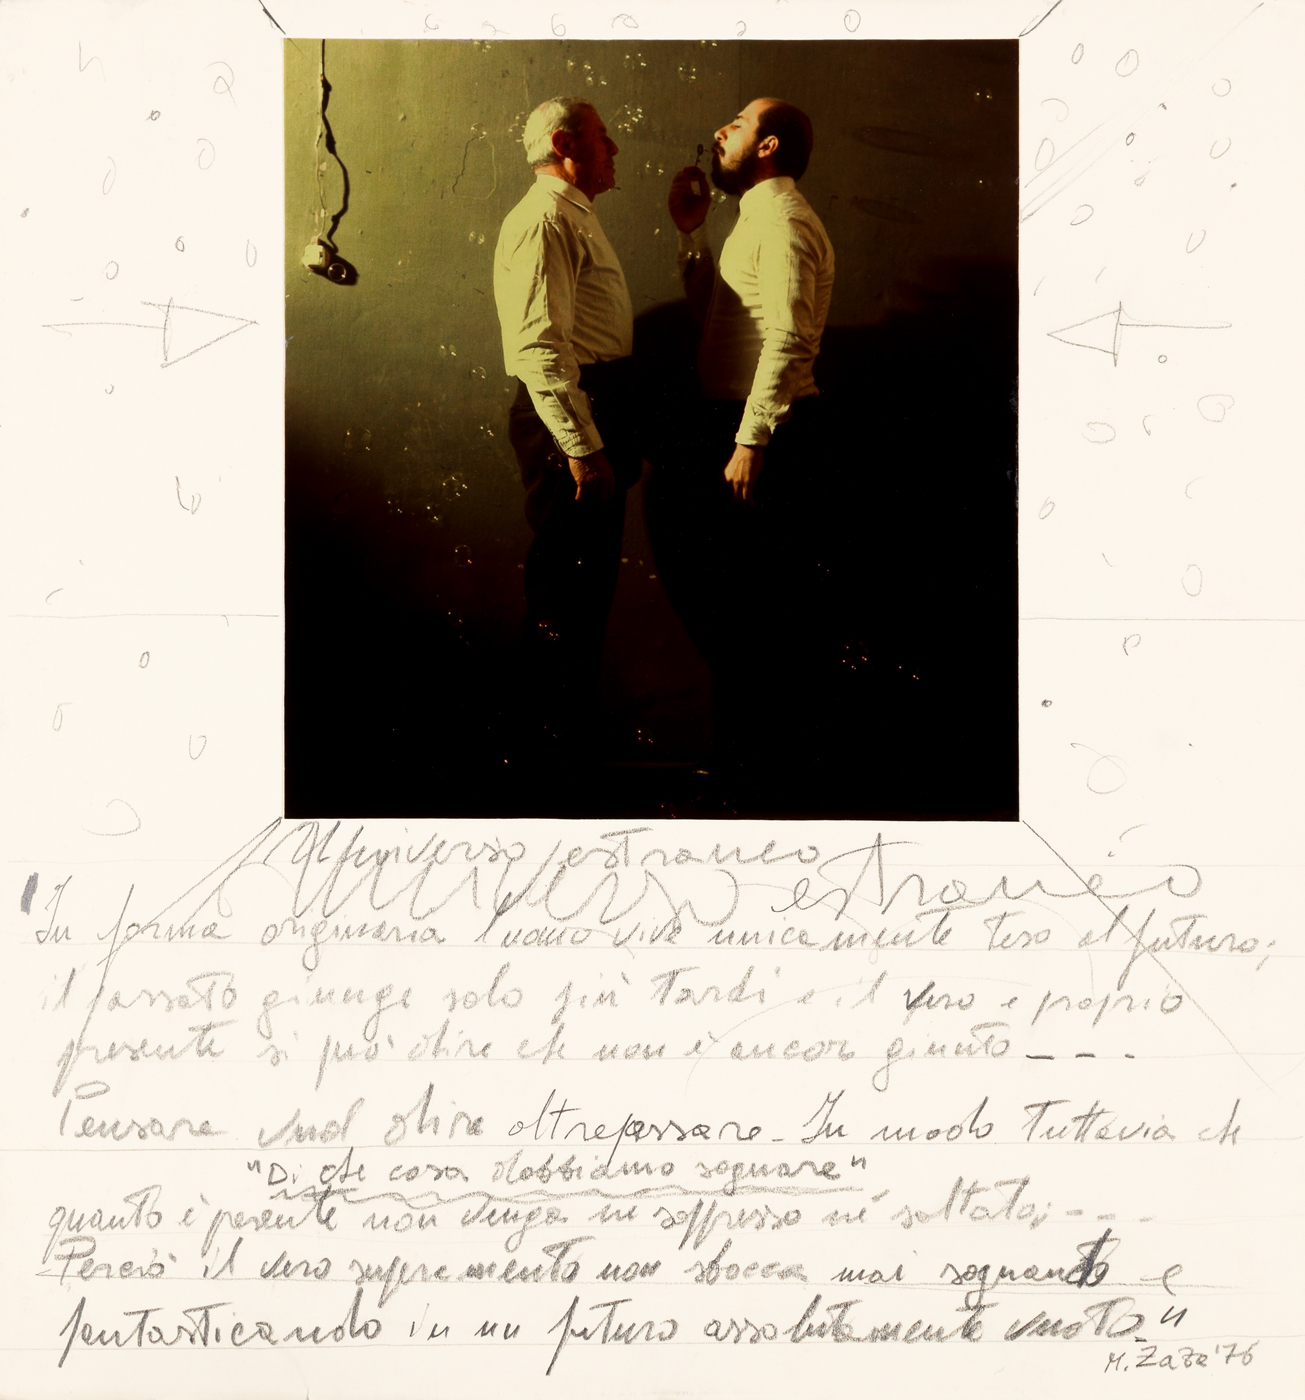 Universo estraneo
Universo estraneo
"In forma originaria l'uomo vive unicamente teso al futuro;
il passato giunge solo più tardi e il vero e proprio
presente si può dire che non è ancora giunto - - -
Pensare vuol dire oltrepassare - In modo tuttavia che
"Di che cosa dobbiamo sognare"
quanto è presente non venga né soppresso né saltato; - - -
Perciò il vero non sbocca mai sognando e
fantasticando in un futuro assolutamente vuoto."
M. Zaza '76